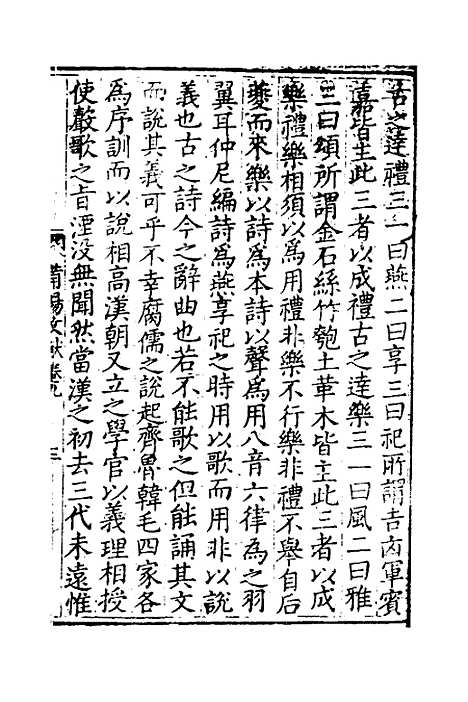 古之達禮三一曰燕二曰享三曰祀所謂吉凶軍賓
嘉皆主此三者以成禮古之達樂三一曰風二曰雅
三曰頌所謂金石絲竹匏土革木皆主此三者以成
樂禮樂相須以為用禮非樂不行樂非禮不舉自后
夔而來樂以詩為本詩以聲為用八音六律為之羽
翼耳仲尼編詩為燕享祀之時用以歌而用非以說
義也古之詩今之辭曲也若不能歌之但能誦其文
而說其義可乎不幸腐儒之說起齊魯韓毛四家各
為序訓而以說相高漢朝又立之學官以義理相授
使聲歌之音湮没無聞然當漢之初去三代未遠惟
莆陽文獻卷九
三